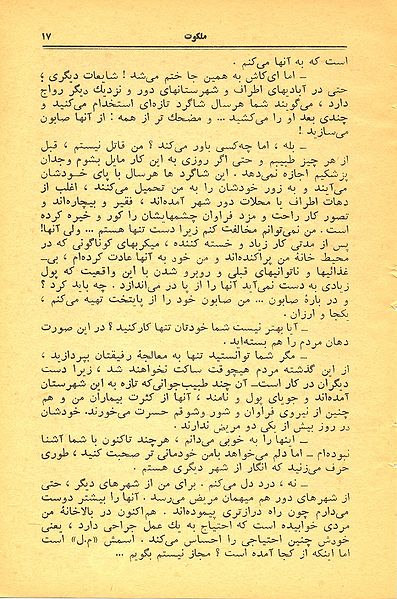 ملکوت ۱۷
است که به آنها می‌کنم .
ـ اما ای‌کاش به همین جا ختم می‌شد ! شایعات دیگری ؛
حتی در آبادیهای اطراف و شهرستانهای دور و نزدیك دیگر رواج
دارد ، می‌گویند شما هرسال شاگرد تازه‌ای استخدام می‌کنید و
چندی بعد او را می‌کشید ... و مضحك تر از همه : از آنها صابون
می‌سازید !
ـ بله ، اما چه‌کسی باور می‌کند ؟ من قاتل نیستم ، قبل
از هر چیز طبیبم و حتی اگر روزی به این کار مایل بشوم وجدان
پزشکیم اجازه نمی‌دهد . این شاگرد ها هرسال با پای خودشان
می‌آیند و به زور خودشان را به من تحمیل می‌کنند ، اغلب از
دهات اطراف یا محلات دور شهر آمده‌اند ، فقیر و بیچاره‌اند و
تصور کار راحت و مزد فراوان چشمهایشان را کور و خیره کرده
است . من نمی‌توانم مخالفت کنم زیرا دست تنها هستم ... ولی آنها!
پس از مدتی کار زیاد و خسته کننده ، میکربهای گوناگونی که در
محیط خانهٔ من پراکنده‌اند و من خود به آنها عادت کرده‌ام ، بی‌ـ
غذائیها و ناتوانیهای قبلی و روبرو شدن با این واقعیت که پول
زیادی به دست نمی‌آید آنها را از پا در می‌اندازد . چه باید کرد ؟
و در بارهٔ صابون ... من صابون خود را از پایتخت تهیه می‌کنم ،
یکجا و ارزان .
ـ آیا بهتر نیست شما خودتان تنها کارکنید ؟ در این صورت
دهان مردم را هم بسته‌اید .
ـ مگر شما توانستید تنها به معالجهٔ رفیقتان بپردازید ،
از این گذشته مردم هیچوقت ساکت نخواهند شد ، زیرا دست
دیگران در کار است ـ آن چند طبیب‌جوانی‌که تازه به این شهرستان
آمده‌اند و جویای پول و نامند ، آنها از کثرت بیماران من و هم
چنین از نیروی فراوان و شور وشوقم حسرت می‌خورند. خودشان
در روز بیش از یکی دو مریض ندارند .
ـ اینها را به خوبی می‌دانم ، هرچند تاکنون با شما آشنا
نبوده‌ام ـ اما دلم می‌خواهد بامن خودمانی تر صحبت کنید ، طوری
حرف می‌زنید که انگار از شهر دیگری هستم .
ـ نه ، درد دل می‌کنم . برای من از شهرهای دیگر ، حتی
از شهرهای دور هم میهمان مریض می‌رسد . آنها را بیشتر دوست
می‌دارم چون راه درازتری پیموده‌اند . هم‌اکنون در بالاخانهٔ من
مردی خوابیده است که احتیاج به یك عمل جراحی دارد ، یعنی
خودش چنین احتیاجی را احساس می‌کند . اسمش «م.ل» است
اما اینکه از کجا آمده است ؟ مجاز نیستم بگویم ...